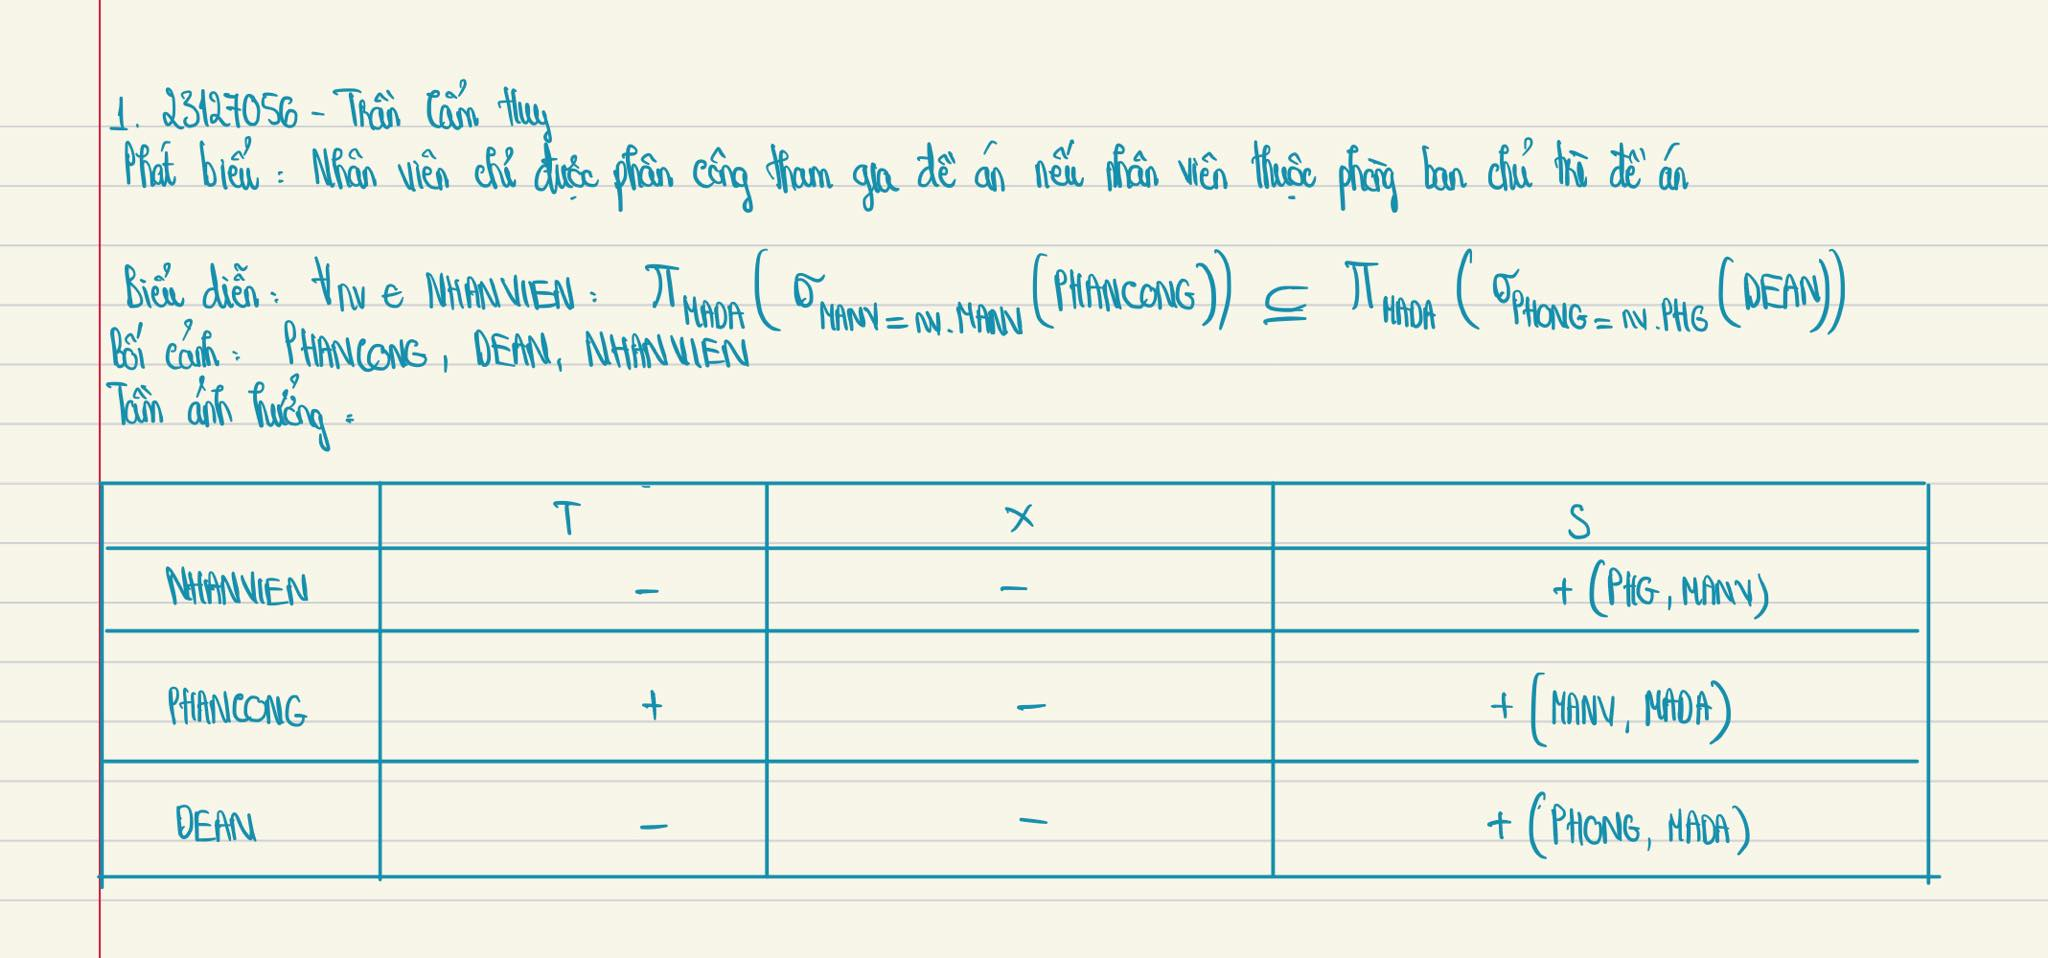 1. 23127056 - Trần Cẩm Huy
Phát biểu : Nhân viên chỉ được phân công tham gia đề án nếu nhân viên thuộc phòng ban chủ trì đề án
Biểu diễn : ∀nv ∈ NHANVIEN : π MADA ( σ MANV = nv.MANV (PHANCONG)) ⊆ π MADA ( σ PHONG = nv.PHG (DEAN))
Bối cảnh : PHANCONG, DEAN, NHANVIEN
Tầm ảnh hưởng :
T X S
NHANVIEN - - + (PHG, MANV)
PHANCONG + - + (MANV, MADA)
DEAN - - + (PHONG, MADA)